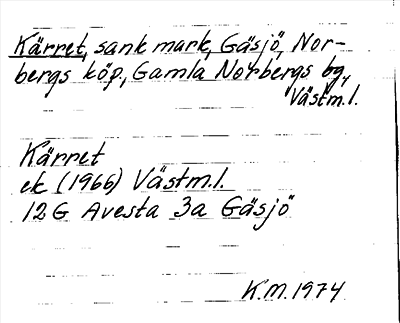 Kärret, sank mark, Gäsjö, Nor-
bergs köp., Gamla Norbergs bg,
Västm.l.
Kärret
ek (1966) Västm.l.
12G Avesta 3a Gäsjö
K.M. 1974